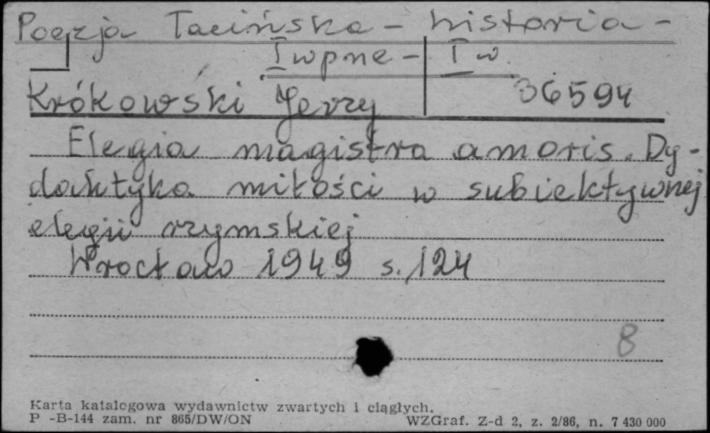 Poezja Łacińska - historia -
I w p n e - I w.
Krókowski Jerzy 36594
Elegia magistra amoris. Dy-
daktyka miłości w subiektywnej
elegii rzymskiej
Wrocław 1949 s. 124
8
Karta katalogowa wydawnictw zwartych i ciągłych.
P -B-144 zam. nr 865/DW/ON WZGraf. Z-d 2, z. 2/86, n. 7 430 000